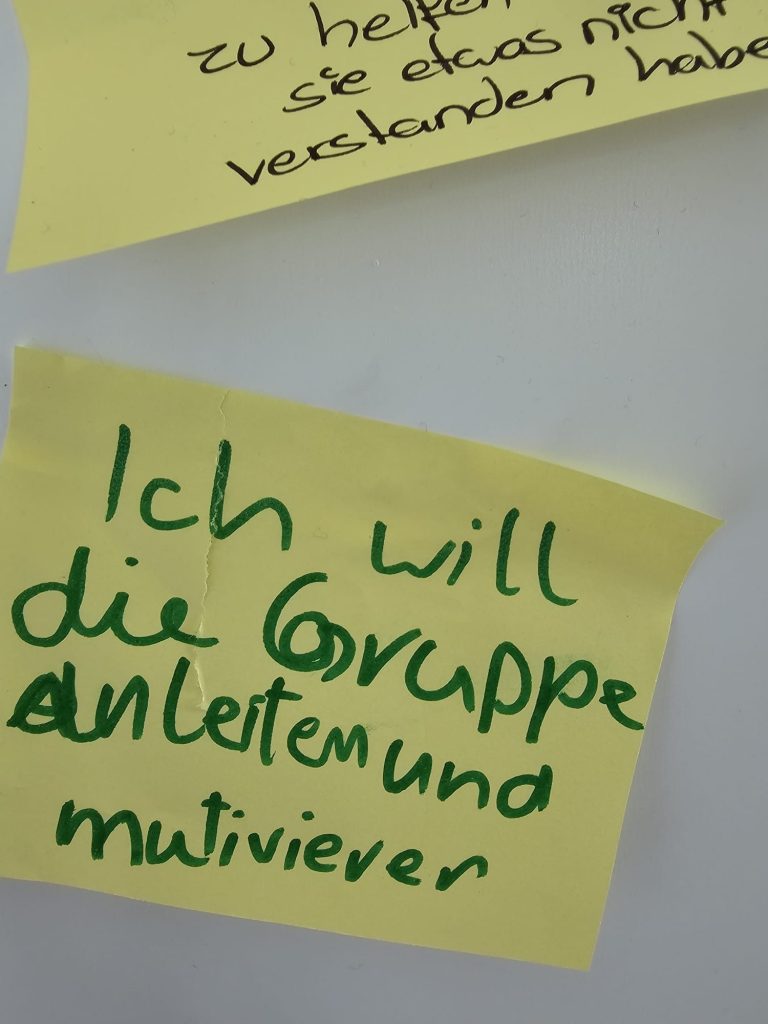 zu helfen
sie etwas nicht
verstanden habe
Ich will
die Gruppe
anleiten und
mutivieren